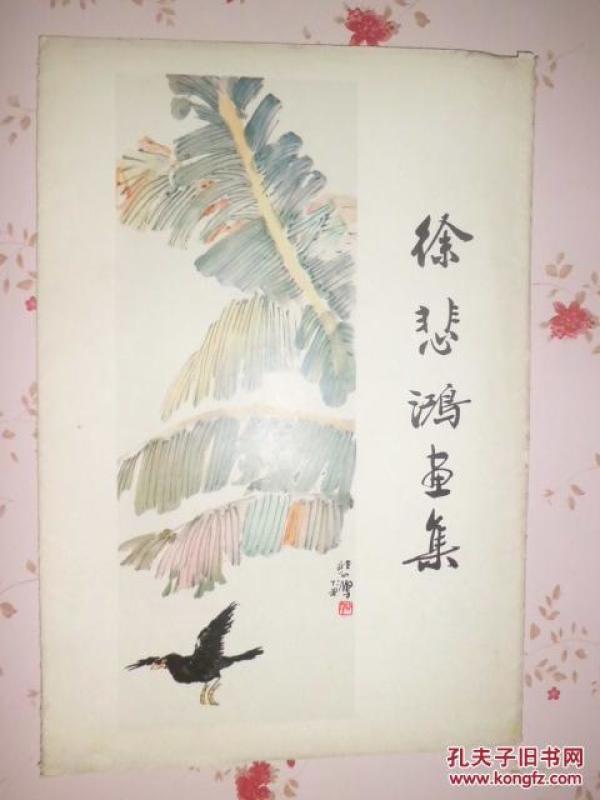 徐悲鸿画集
悲鴻
孔夫子旧书网
www.kongfz.com